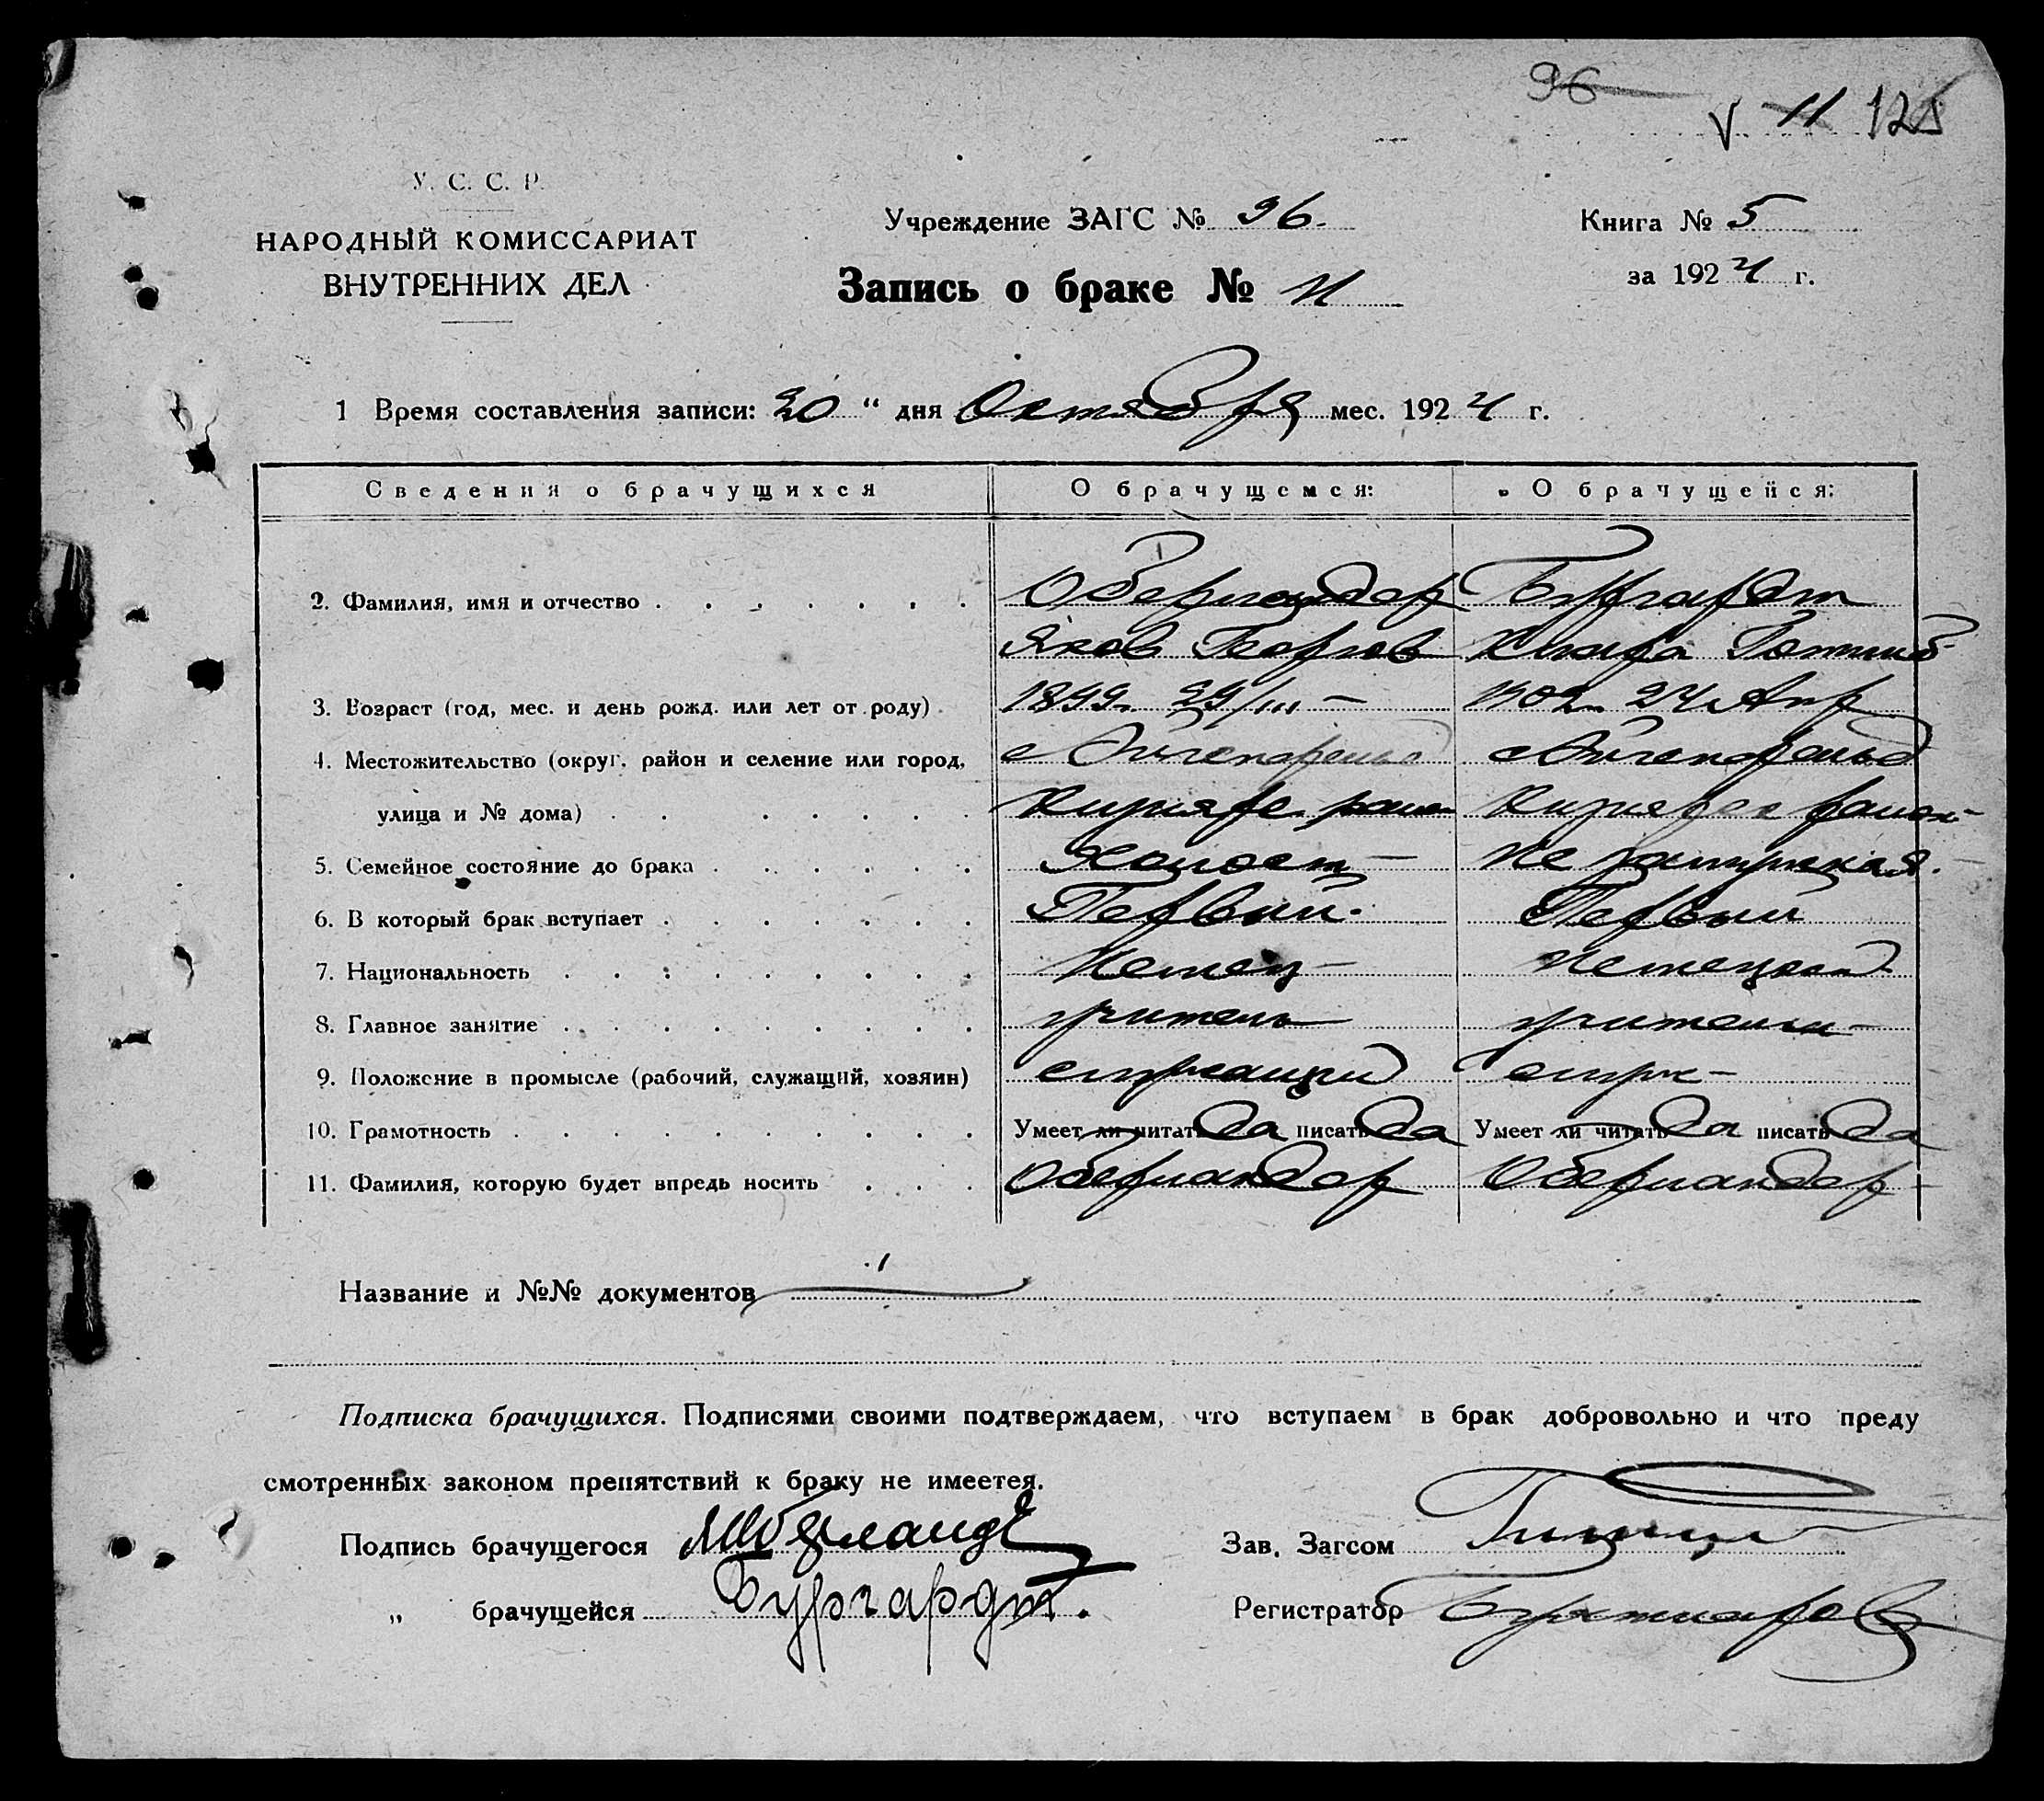 96
V 11 125
У. С. С. Р.
НАРОДНЫЙ КОМИССАРИАТ
ВНУТРЕННИХ ДЕЛ
Учреждение ЗАГС № 96.
Книга № 5
за 1924 г.
Запись о браке № 11
1 Время составления записи: 20 " дня Октября мес. 1924 г.
Сведения о брачущихся О брачущемся: О брачущейся:
2. Фамилия, имя и отчество Оберландер Бургардт
Яков Георгов Клара Готлиб
3. Возраст (год, мес. и день рожд. или лет от роду) 1899. 29/III – 1902. 24 Апр
4. Местожительство (округ, район и селение или город,
улица и № дома) район район
5. Семейное состояние до брака Холост – Не замужная.
6. В который брак вступает Первый. Первый
7. Национальность Немец – Немецкой
8. Главное занятие учитель учительн –
9. Положение в промысле (рабочий, служащий, хозяин) служащий служ –
10. Грамотность Умеет ли читать да писать да Умеет ли читать да писать да
11. Фамилия, которую будет впредь носить Оберландер Оберландер
Название и №№ документов
Подписка брачущихся. Подписями своими подтверждаем, что вступаем в брак добровольно и что преду
смотренных законом препятствий к браку не имеется.
Подпись брачущегося Зав. Загсом
„ брачущейся Бургардт. Регистратор